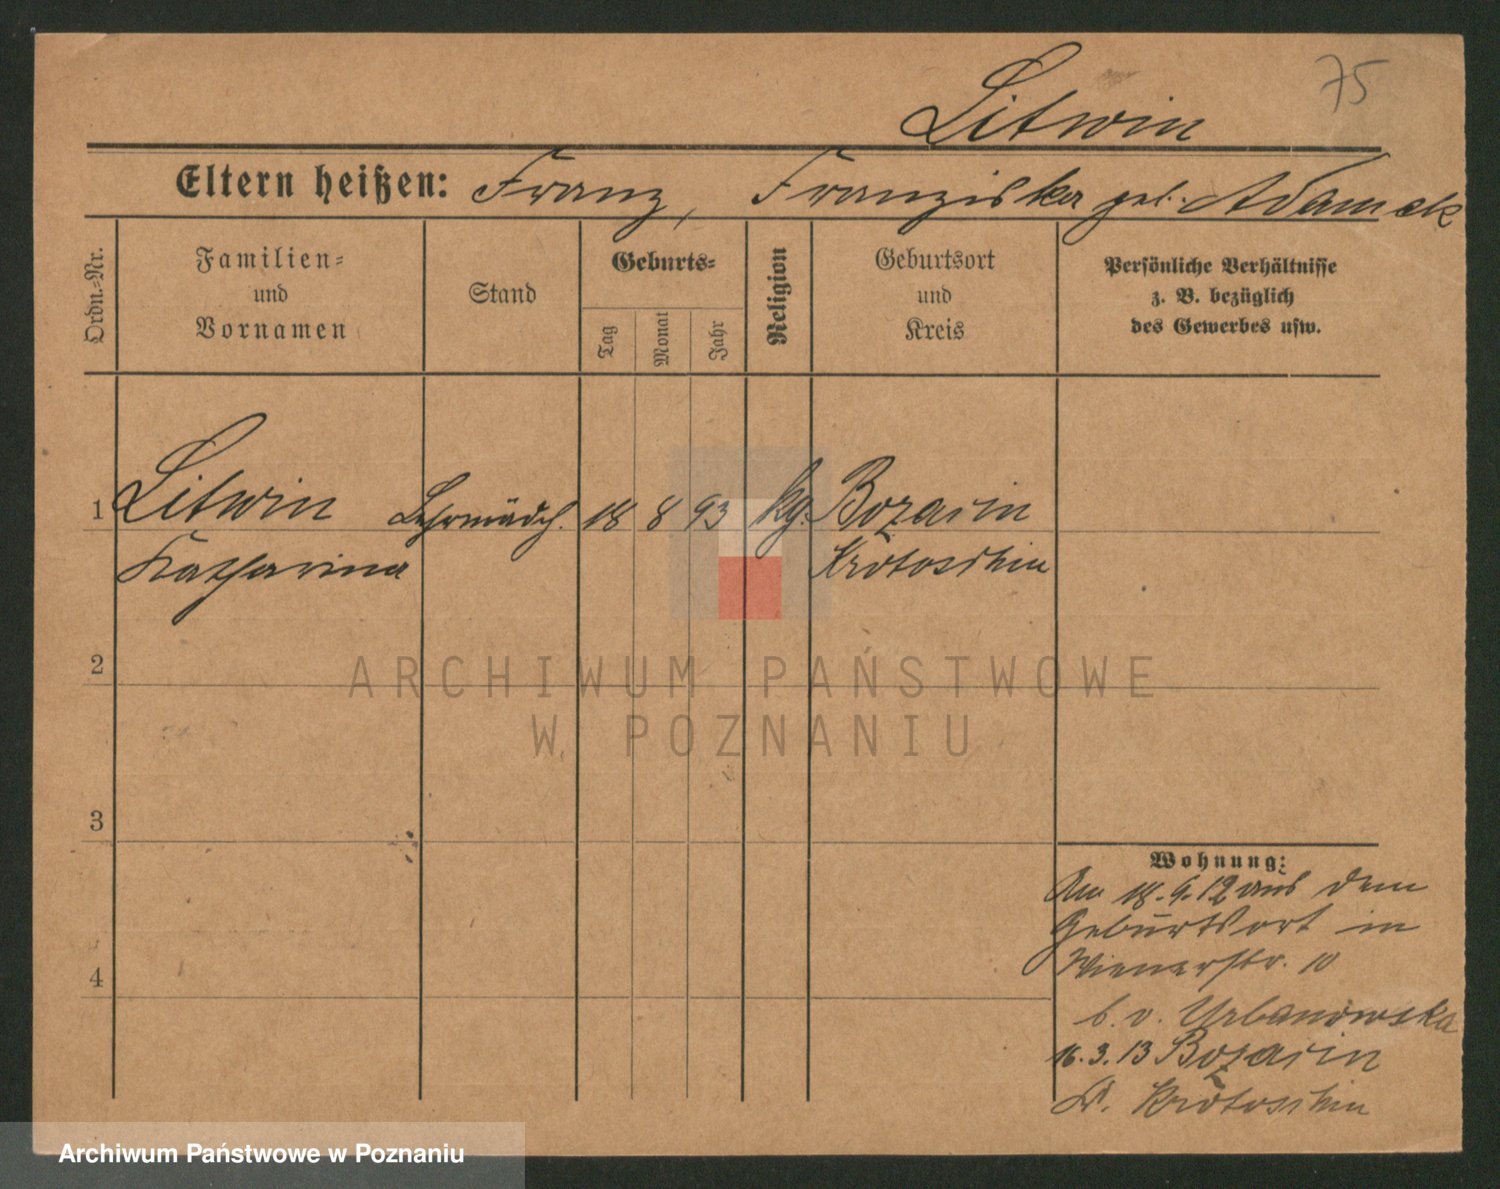 75
Litwin
Eltern heißen: Franz, Franziska geb. Adamek
Ordn.-Nr.
Familien-
und
Vornamen
Stand
Geburts-
Tag
Monat
Jahr
Religion
Geburtsort
und
Kreis
Persönliche Verhältnisse
z. B. bezüglich
des Gewerbes usw.
1 Litwin Lehrmädch. 18 8 93 kg. Bozacin
Katharina Krotoschin
2
3
4
ARCHIWUM PAŃSTWOWE
W POZNANIU
Wohnung:
Am 18. 9. 12 aus dem
Geburtsort in
Wienerstr. 10
b. v. Urbanowska
16. 3. 13 Bozacin
Kr. Krotoschin
Archiwum Państwowe w Poznaniu